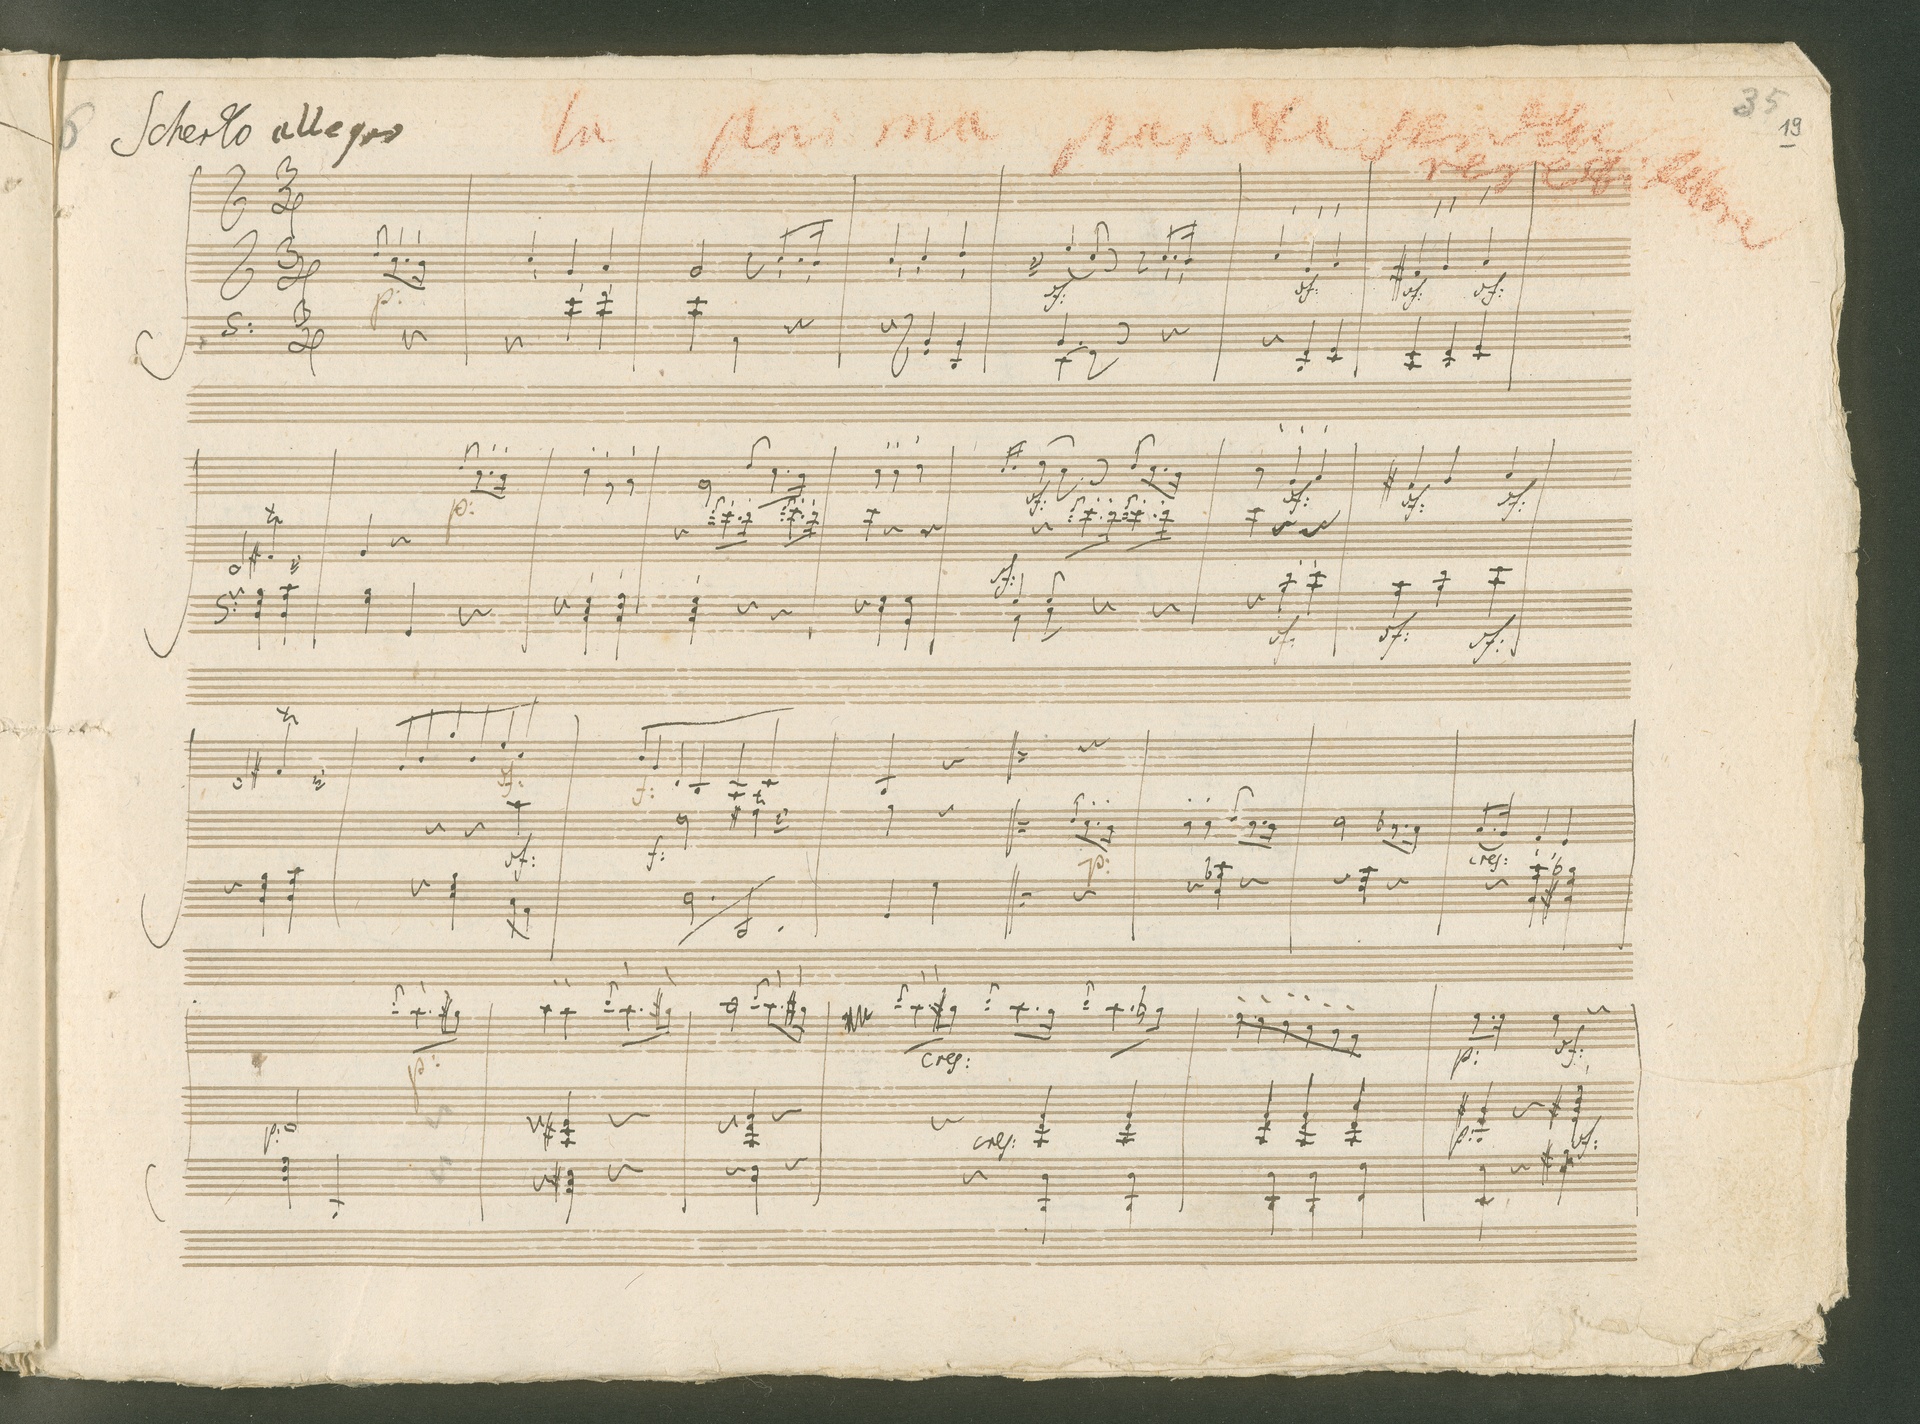 35
19
Scherzo allegro
la prima parte senza
repetizione
p:
sf: sf: sf: sf:
p:
sf: sf: sf: sf:
sf:
sf: sf: sf:
sf: f:
sf: f:
p: cres:
p: cres: p: sf:
p: cres: p: sf: